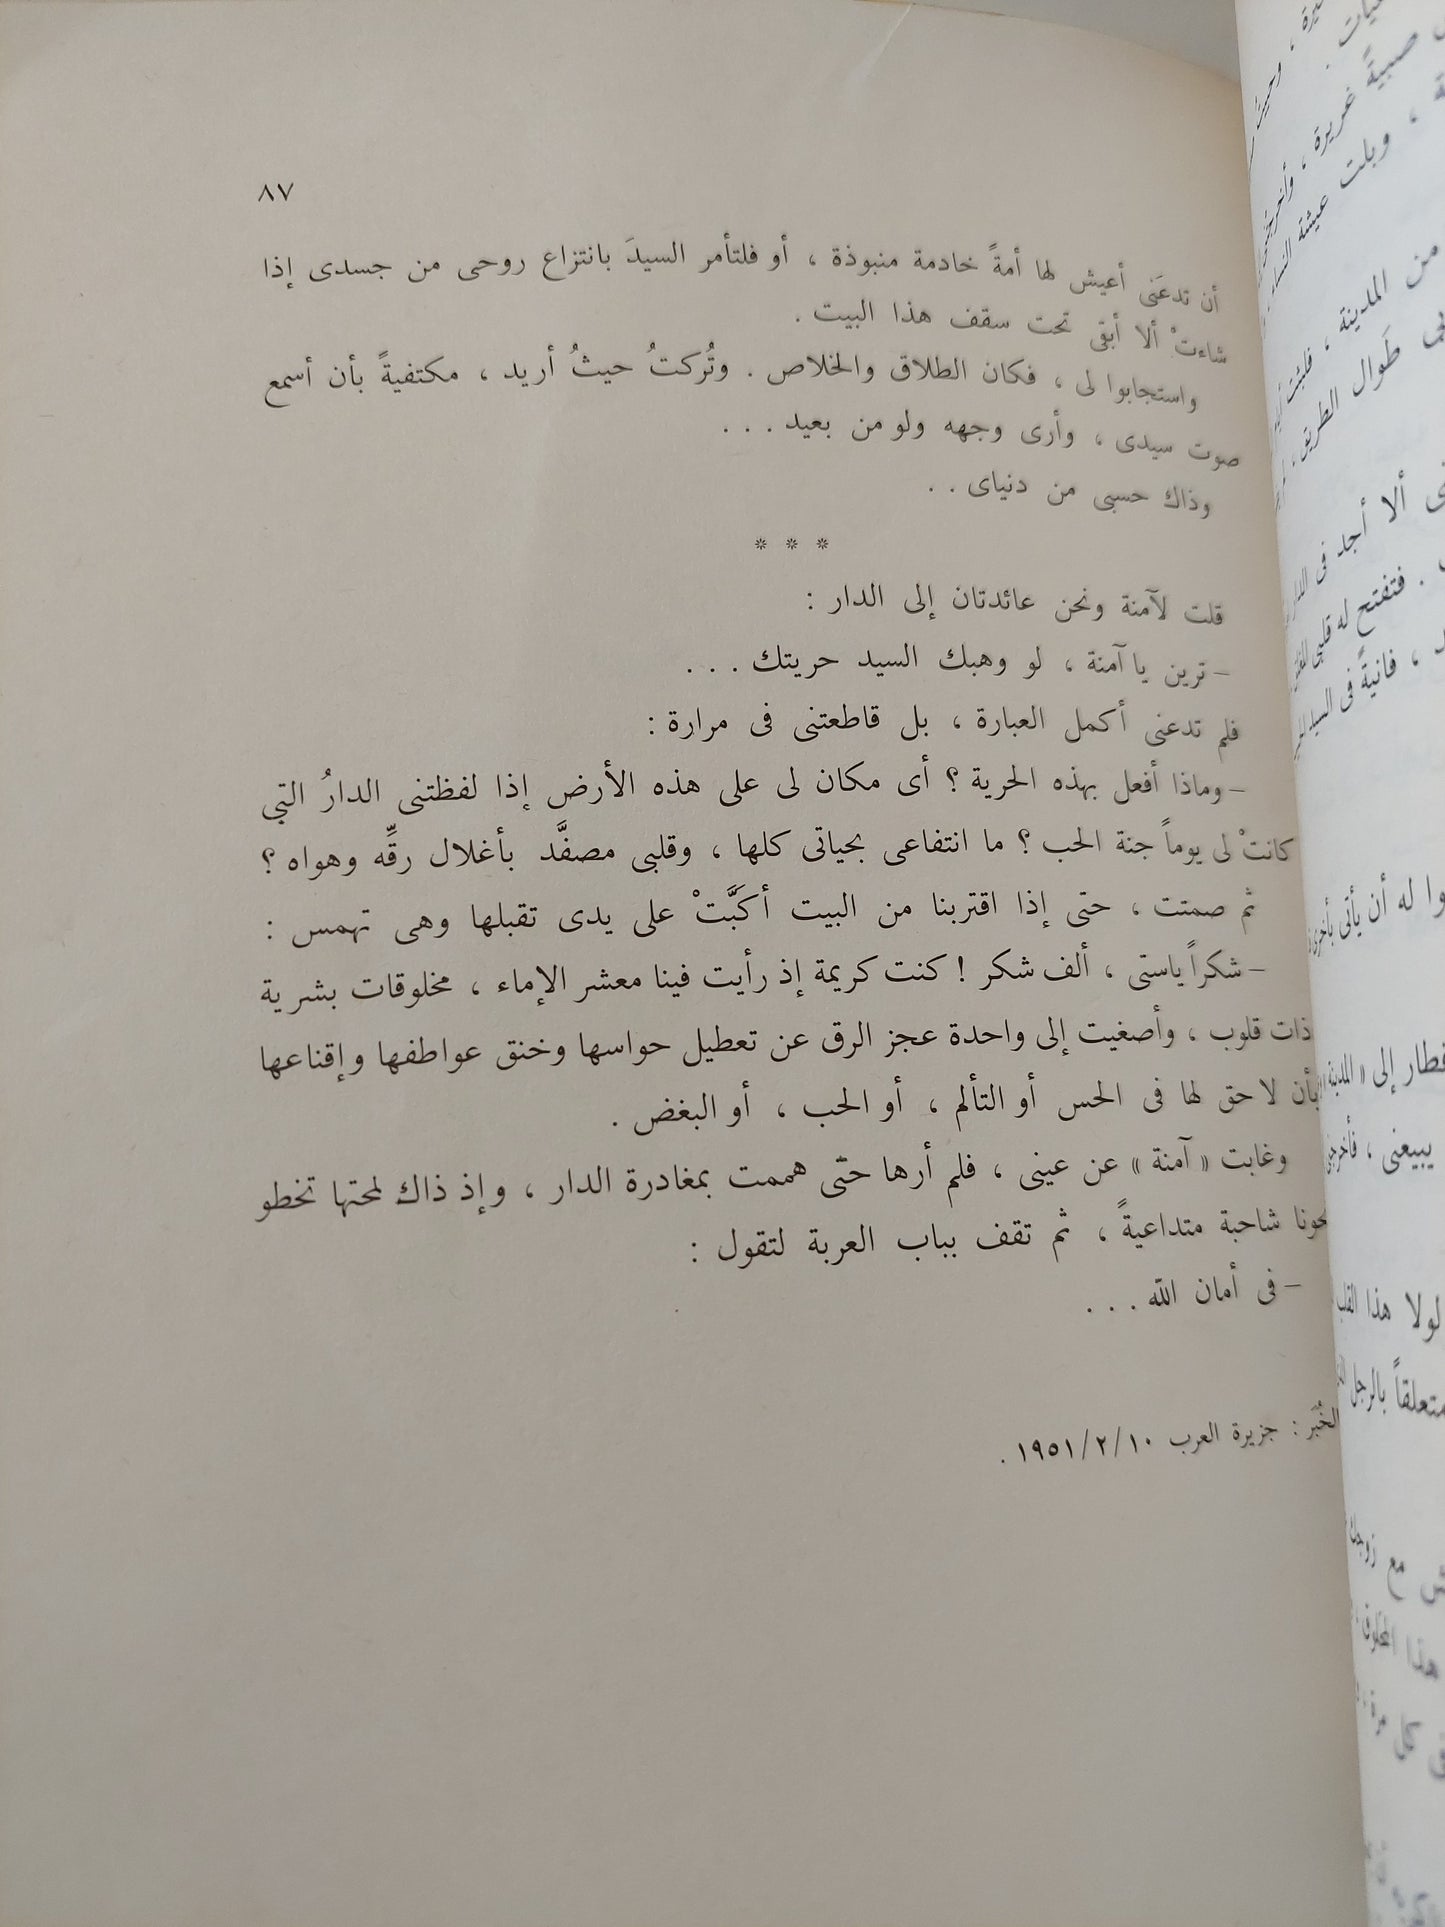 ٨٧
أن تدعَنى أعيش لها أمةً خادمة منبوذة ، أو فلتأمر السيدَ بانتزاع روحى من جسدى إذا
شاءتْ ألا أبقى تحت سقف هذا البيت .
واستجابوا لى ، فكان الطلاق والخلاص . وتُركتُ حيثُ أريد ، مكتفيةً بأن أسمع
صوت سيدى ، وأرى وجهه ولو من بعيد . . .
وذاك حسبى من دنياى . .
* * *
قلت لآمنة ونحن عائدتان إلى الدار :
– ترين يا آمنة ، لو وهبك السيد حريتك . . .
فلم تدعنى أكمل العبارة ، بل قاطعتنى فى مرارة :
– وماذا أفعل بهذه الحرية ؟ أى مكان لى على هذه الأرض إذا لفظتنى الدارُ التي
كانتْ لى يوماً جنة الحب ؟ ما انتفاعى بحياتى كلها ، وقلبى مصفَّد بأغلال رقِّه وهواه ؟
ثم صمتت ، حتى إذا اقتربنا من البيت أكبَّتْ على يدى تقبلها وهى تهمس :
– شكراً ياستى ، ألف شكر ! كنت كريمة إذ رأيت فينا معشر الإماء ، مخلوقات بشرية
ذات قلوب ، وأصغيت إلى واحدة عجز الرق عن تعطيل حواسها وخنق عواطفها وإقناعها
بأن لا حق لها فى الحس أو التألم ، أو الحب ، أو البغض .
وغابت « آمنة » عن عينى ، فلم أرها حتّى هممت بمغادرة الدار ، وإذ ذاك لمحتها تخطو
نحونا شاحبة متداعيةً ، ثم تقف بباب العربة لتقول :
– فى أمان اللّه . . .
الخُبَر : جزيرة العرب ١٩٥١/٢/١٠ .
صبيةً غريرة ،
، وبلت عيشة
من المدينة ،
طَوال الطريق ،
ألا أجد فى
. فتفتح له قلبى
، فانيةً فى السيد
له أن يأتى بأخرى
إلى « المدينة »
يبيعنى ،
لولا هذا القلب
متعلقاً بالرجل
مع
هذا